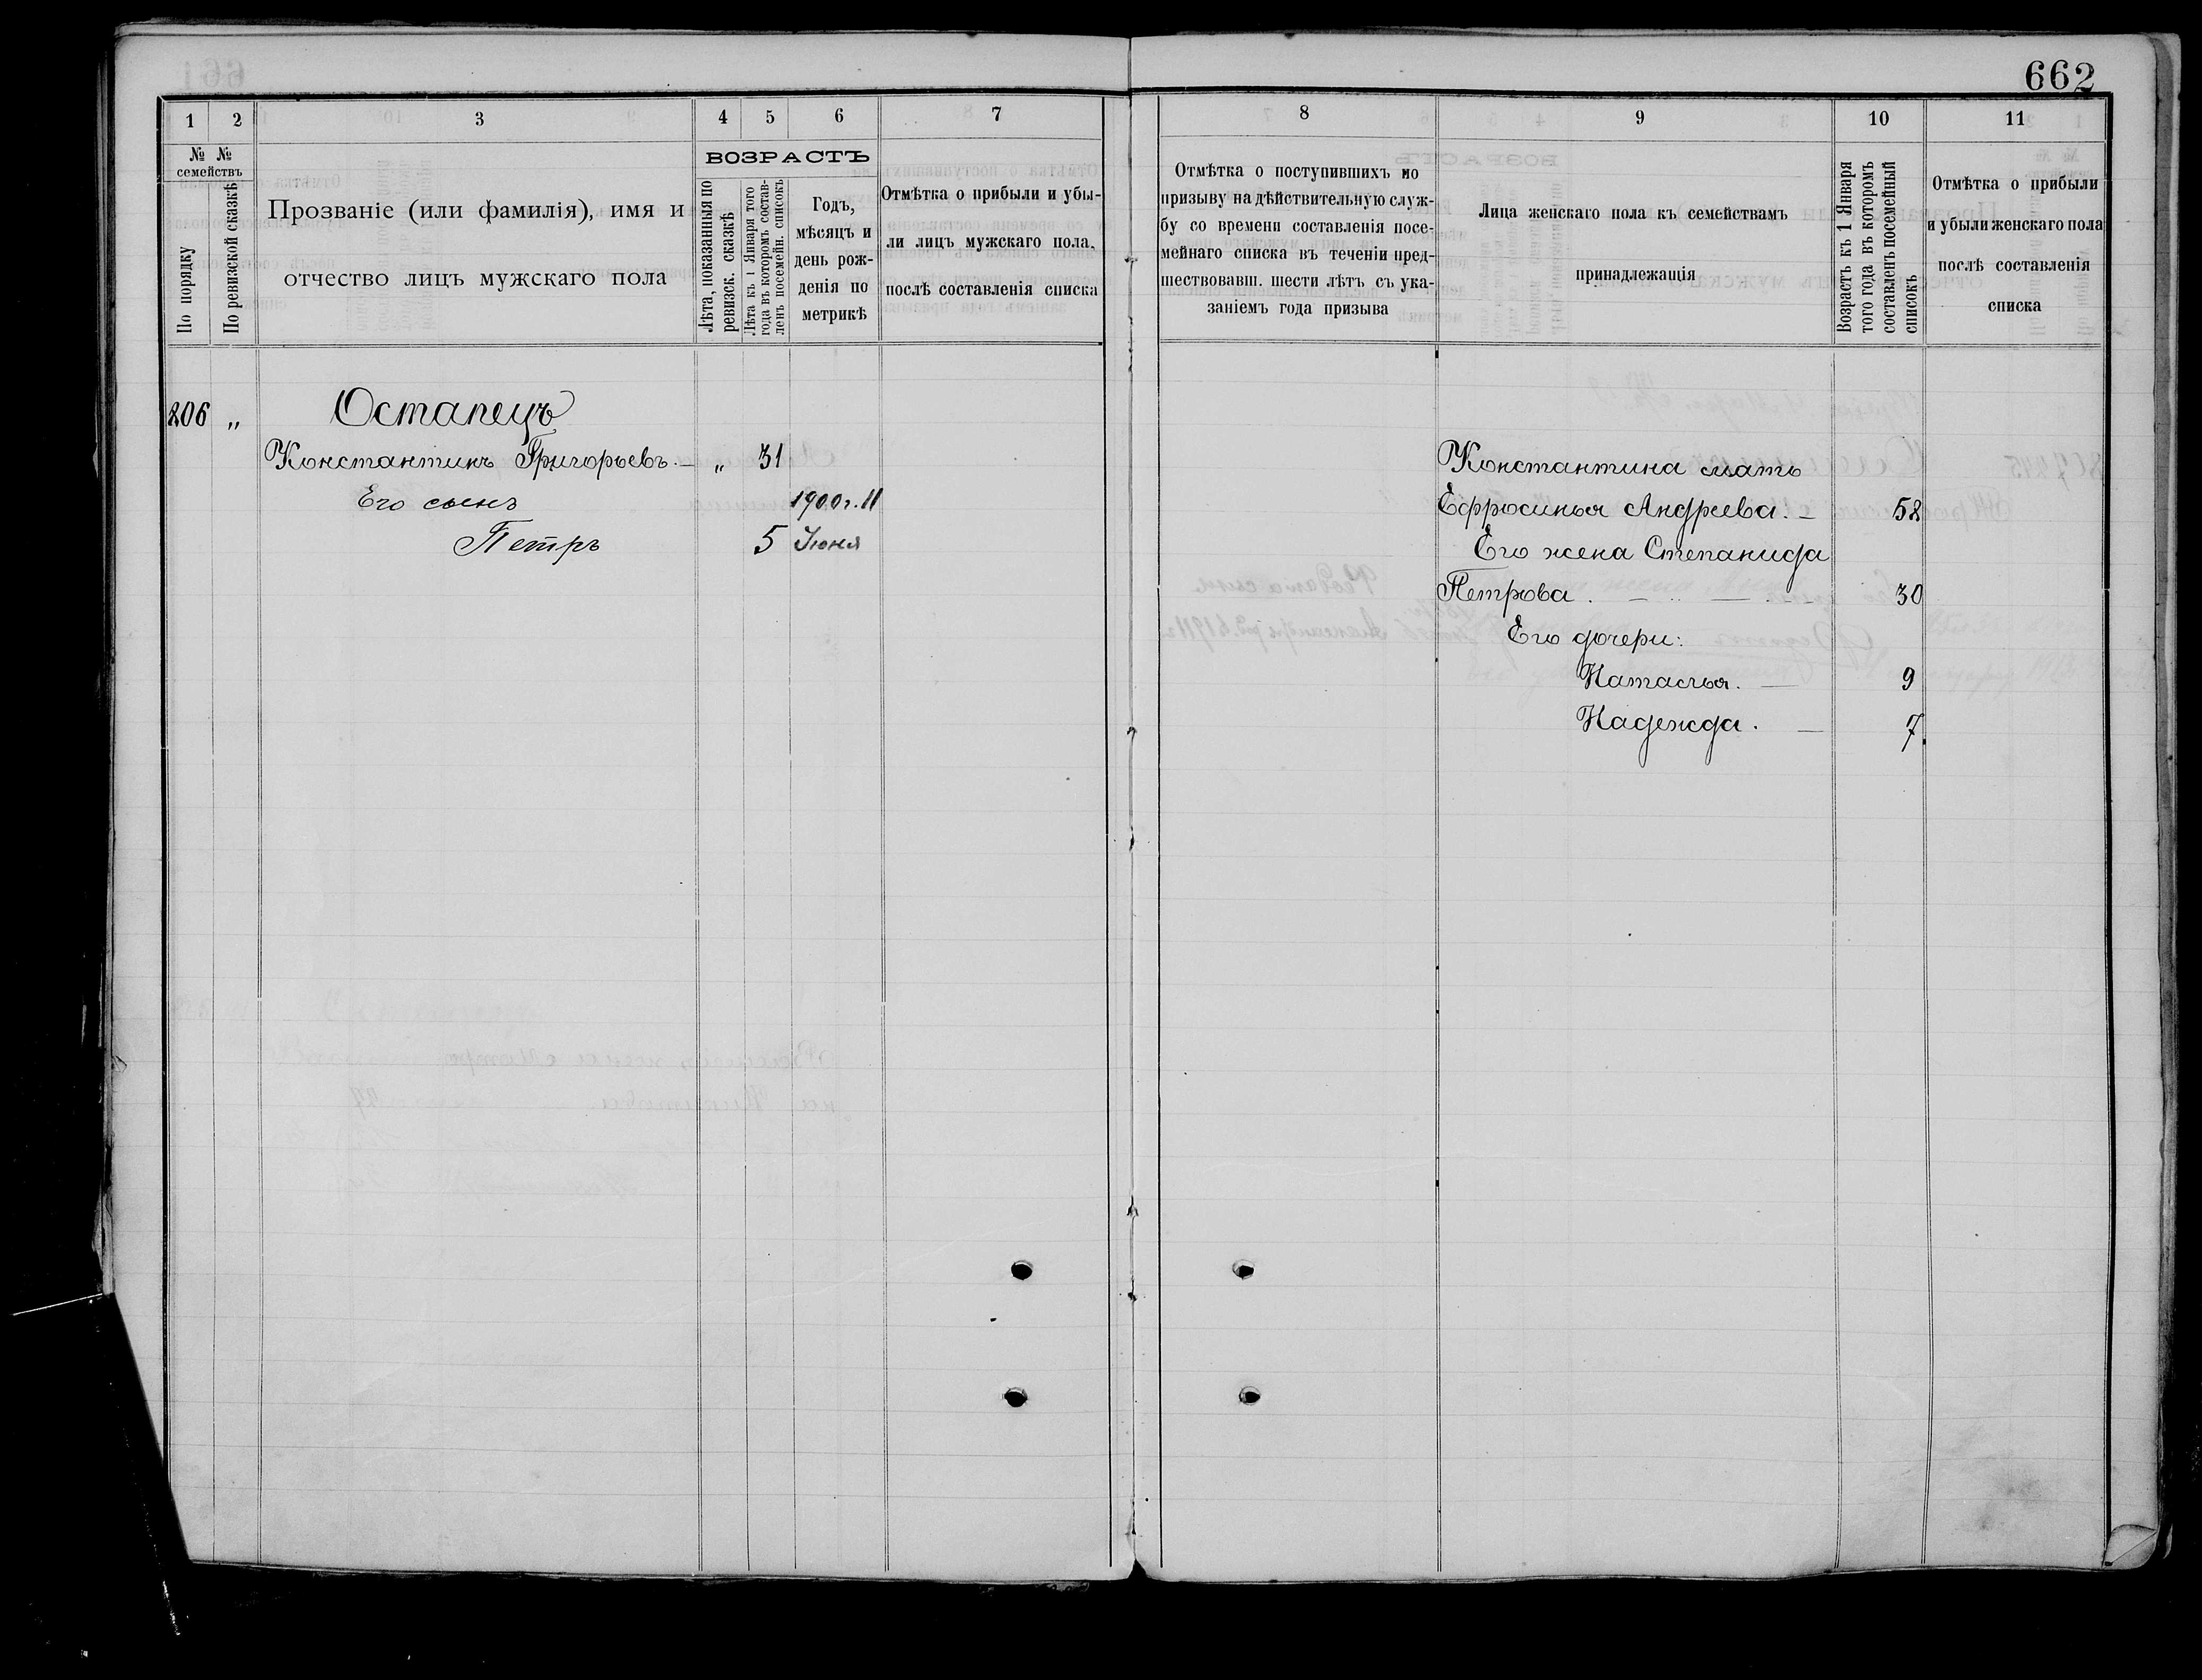 662
1 2 3 4 5 6 7
№ № семействъ
По порядку
По ревизской сказкѣ
Прозваніе (или фамилія), имя и
отчество лицъ мужскаго пола
ВОЗРАСТЪ
Лѣта, показанныя по
ревизск. сказкѣ
Лѣта къ 1 Января того
года въ которомъ состав-
ленъ посемейн. списокъ
Годъ,
мѣсяцъ и
день рож-
денія по
метрикѣ
Отмѣтка о прибыли и убы-
ли лицъ мужскаго пола,
послѣ составленія списка
206 „ Остапецъ
Константинъ Григорьевъ. — „ 31
Его сынъ 1900 г. 11
Петръ 5 Июня
8 9 10 11
Отмѣтка о поступившихъ по
призыву на дѣйствительную служ-
бу со времени составленія посе-
мейнаго списка въ теченіи пред-
шествовавш. шести лѣтъ съ ука-
заніемъ года призыва
Лица женскаго пола къ семействамъ
принадлежащія
Возрастъ къ 1 Января
того года въ которомъ
составленъ посемейный
списокъ
Отмѣтка о прибыли
и убыли женскаго пола
послѣ составленія
списка
Константина мать
Ефросинья Андреева. — 58
Его жена Степанида
Петрова . — .. — . — 30
Его дочери:
Наталья. — 9
Надежда. — 7.